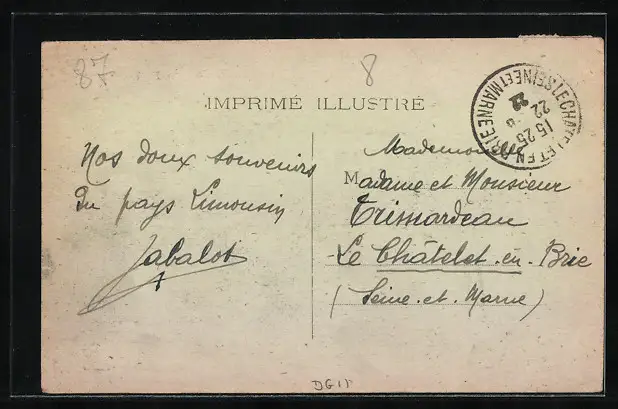 87
8
IMPRIMÉ ILLUSTRÉ
LE CHATELET EN BRIE
SEINE ET MARNE
15 25
22
22
Nos doux souvenirs
du pays Limousin
Jabalot
Mademoiselle
Madame et Monsieur
Trimardeau
Le Châtelet-en-Brie
(Seine-et-Marne)
DG11